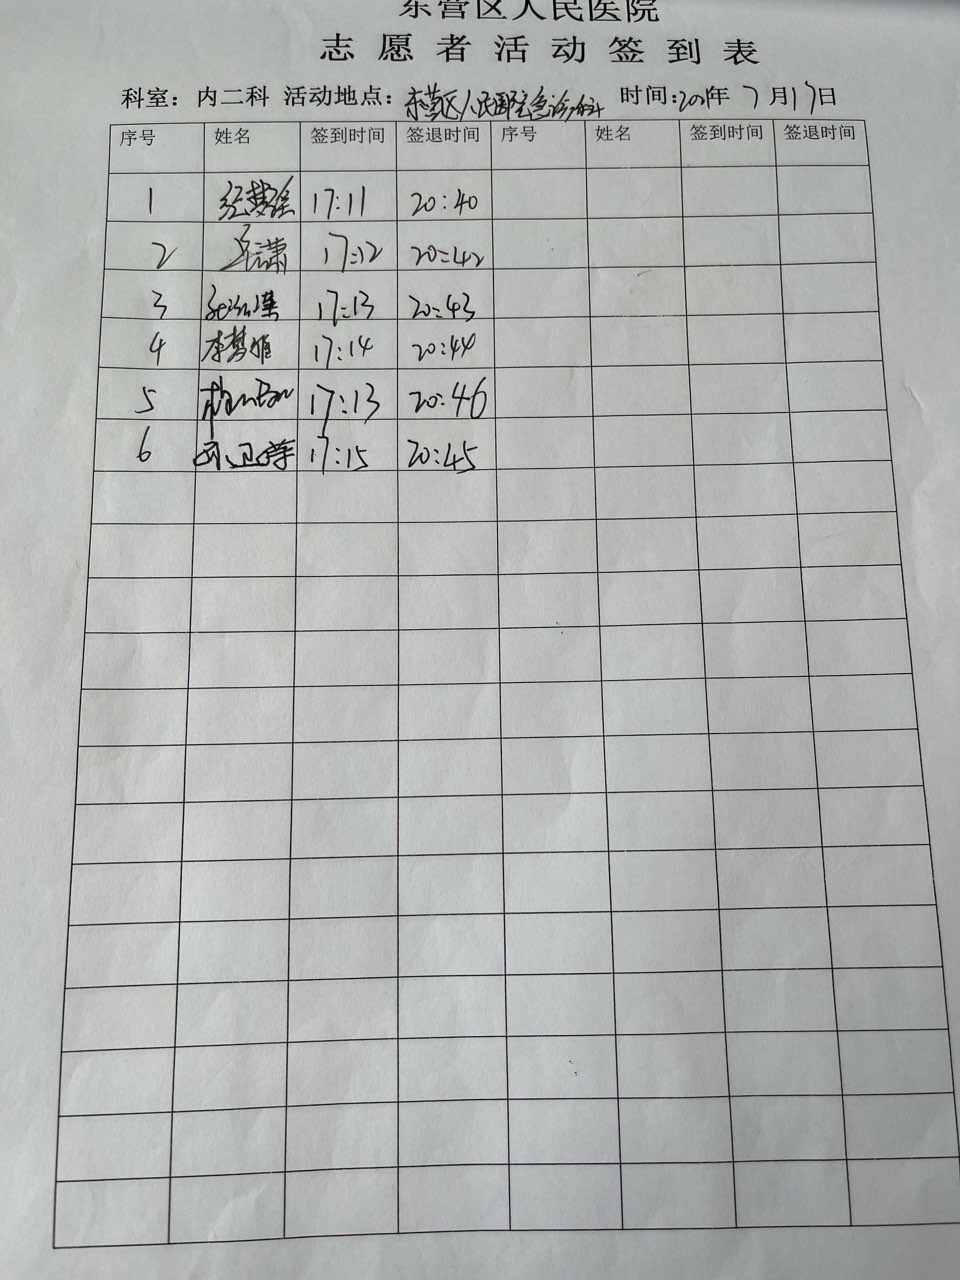 东营区人民医院
志愿者活动签到表
科室：内二科 活动地点：东营区人民医院急诊科 时间：年 7 月 17 日
序号 姓名 签到时间 签退时间 序号 姓名 签到时间 签退时间
1 17:11 20:40
2 17:12 20:42
3 17:13 20:43
4 李梦雅 17:14 20:44
5 17:13 20:46
6 17:15 20:45